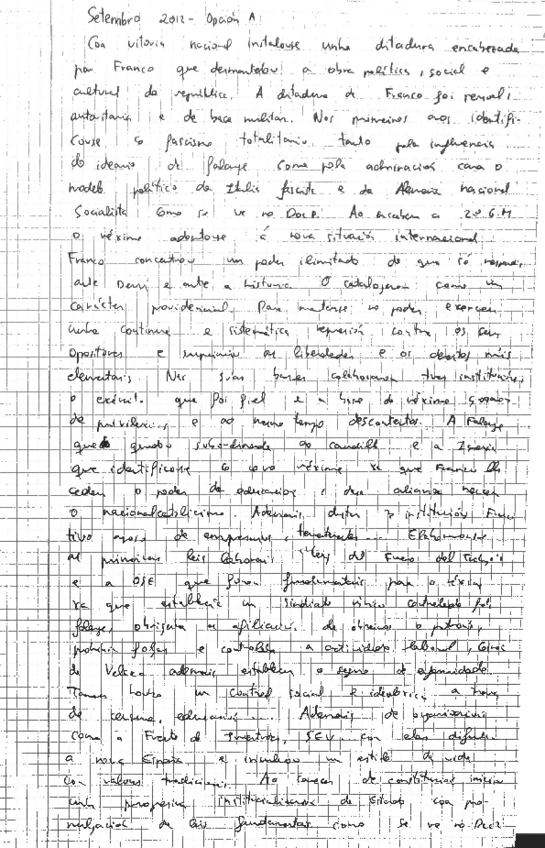 Setembro 2012 - Opción A
Coa vitoria nacional instalouse unha ditadura encabezada
por Franco que desmantelou a obra política, social e
cultural da república. A ditadura de Franco foi persoal,
autoritaria e de base militar. Nos primeiros anos identifi-
couse co fascismo totalitario, tanto pola influencia
do ideario de falange como pola admiración cara o
modelo político da Italia fascista e da Alemaña nacional
Socialista como se ve no Doc.2. Ao acabar a 2ª G.M
o réxime adaptouse á nova situación internacional.
Franco concentrou un poder ilimitado do que só
ante Deus e ante a historia. O catalogaron como un
carácter providencial. Para manterse no poder exerceu
unha continua e sistemática represión contra os seus
opositores e suprimiu as liberdades e os dereitos máis
elementais. Nas súas bases colaboraron tres institucións,
o exército que foi fiel e a base do réxime
de privilexios, e ao mesmo tempo descontentos. A Falange
que quedou subordinada ao caudillo e a Igrexia
que identificouse co novo réxime xa que Franco lle
cedeu o poder da educación, desa alianza naceu
o nacionalcatolicismo. Ademais destas 3 institucións Franco
tivo apoio de empresarios, terratenentes...
as primeiras leis laborais, "ley del Fuero del Trabajo"
e a OSE que foron fundamentais para o réxime
xa que establecía un sindicato único controlado pola
falange, obrigaba a afiliación de obreiros e patróns,
prohibía folgas e controlaba a actividade laboral,
de Velasco ademais establecen o seguro de enfermidade.
Tamén houbo un control social e ideolóxico a través
da censura, educación.... Ademais de organizacións
como a Frente de Juventudes, SEU con elas difunde
a nova España e inculcou un estilo de vida
con valores tradicionais. Ao carecer de constitución iniciou
unha progresiva institucionalización do Estado coa pro-
mulgación de leis fundamentais como se ve no Doc2